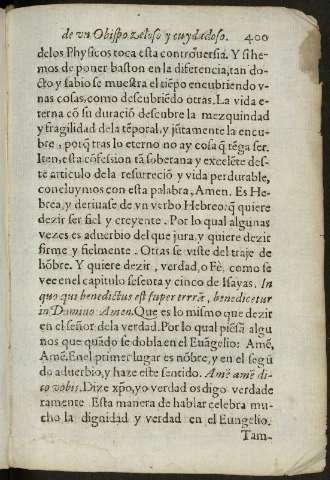 de vn Obispo zeloso y cuydadoso. 400
delos Physicos toca esta controuersia. Y si he-
mos de poner baston en la diferencia, tan do-
cto y sabio se muestra el tiẽpo encubriendo v-
nas cosas, como descubriẽdo otras. La vida e-
terna cõ su duraciõ descubre la mezquindad
y fragilidad dela tẽporal, y jũtamente la encu-
bre, porq̃ tras lo eterno no ay cosa q̃ tẽga ser.
Iten, esta cõfession tã soberana y excelẽte des-
te articulo dela resurreciõ y vida perdurable,
concluymos con esta palabra, Amen. Es He-
brea, y deriuase de vn verbo Hebreo: q̃ quiere
dezir ser fiel y creyente. Por lo qual algunas
vezes es aduerbio del que jura, y quiere dezir
firme y fielmente. Otras se viste del traje de
hõbre. Y quiere dezir, verdad, o Fè, como se
vee enel capitulo sesenta y cinco de Isayas. In
quo qui benedictus est super terrã, benedicetur
in Domino Amen. Que es lo mismo que dezir
en el señor dela verdad. Por lo qual piẽsã algu
nos que quãdo se dobla en el Euãgelio: Amẽ,
Amẽ. Enel primer lugar es nõbre, y en el segũ
do aduerbio, y haze este sentido. Amẽ amẽ di-
co vobis. Dize xp̃o, yo verdad os digo verdade
ramente. Esta manera de hablar celebra mu-
cho la dignidad y verdad en el Euangelio.
Tam-